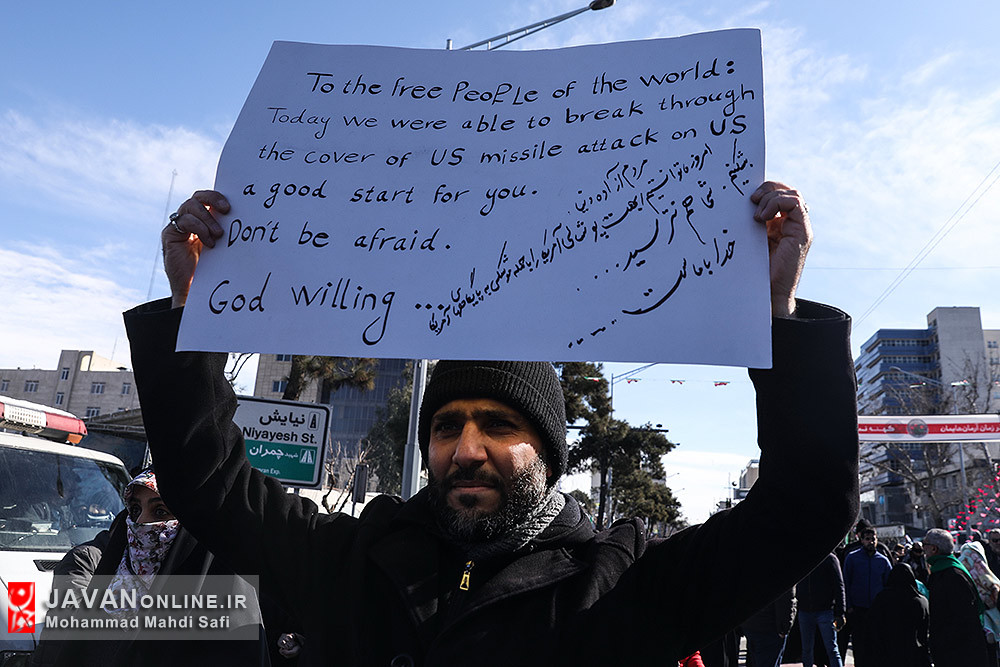 To the free People of the world:
Today we were able to break through
the cover of US missile attack on US
a good start for you.
Don't be afraid.
God willing ...
مردم آزاده دنیا:
امروز ما توانستیم ابهت پوشالی آمریکا را با حمله موشکی به پایگاههای آمریکا
بشکنیم. شما هم نترسید...
خدا با ماست.....
نیایش
Niyayesh St.
شهید چمران
ر زمان آرمان‌هایمان
کهنه نم
JAVANONLINE.IR
Mohammad Mahdi Safi